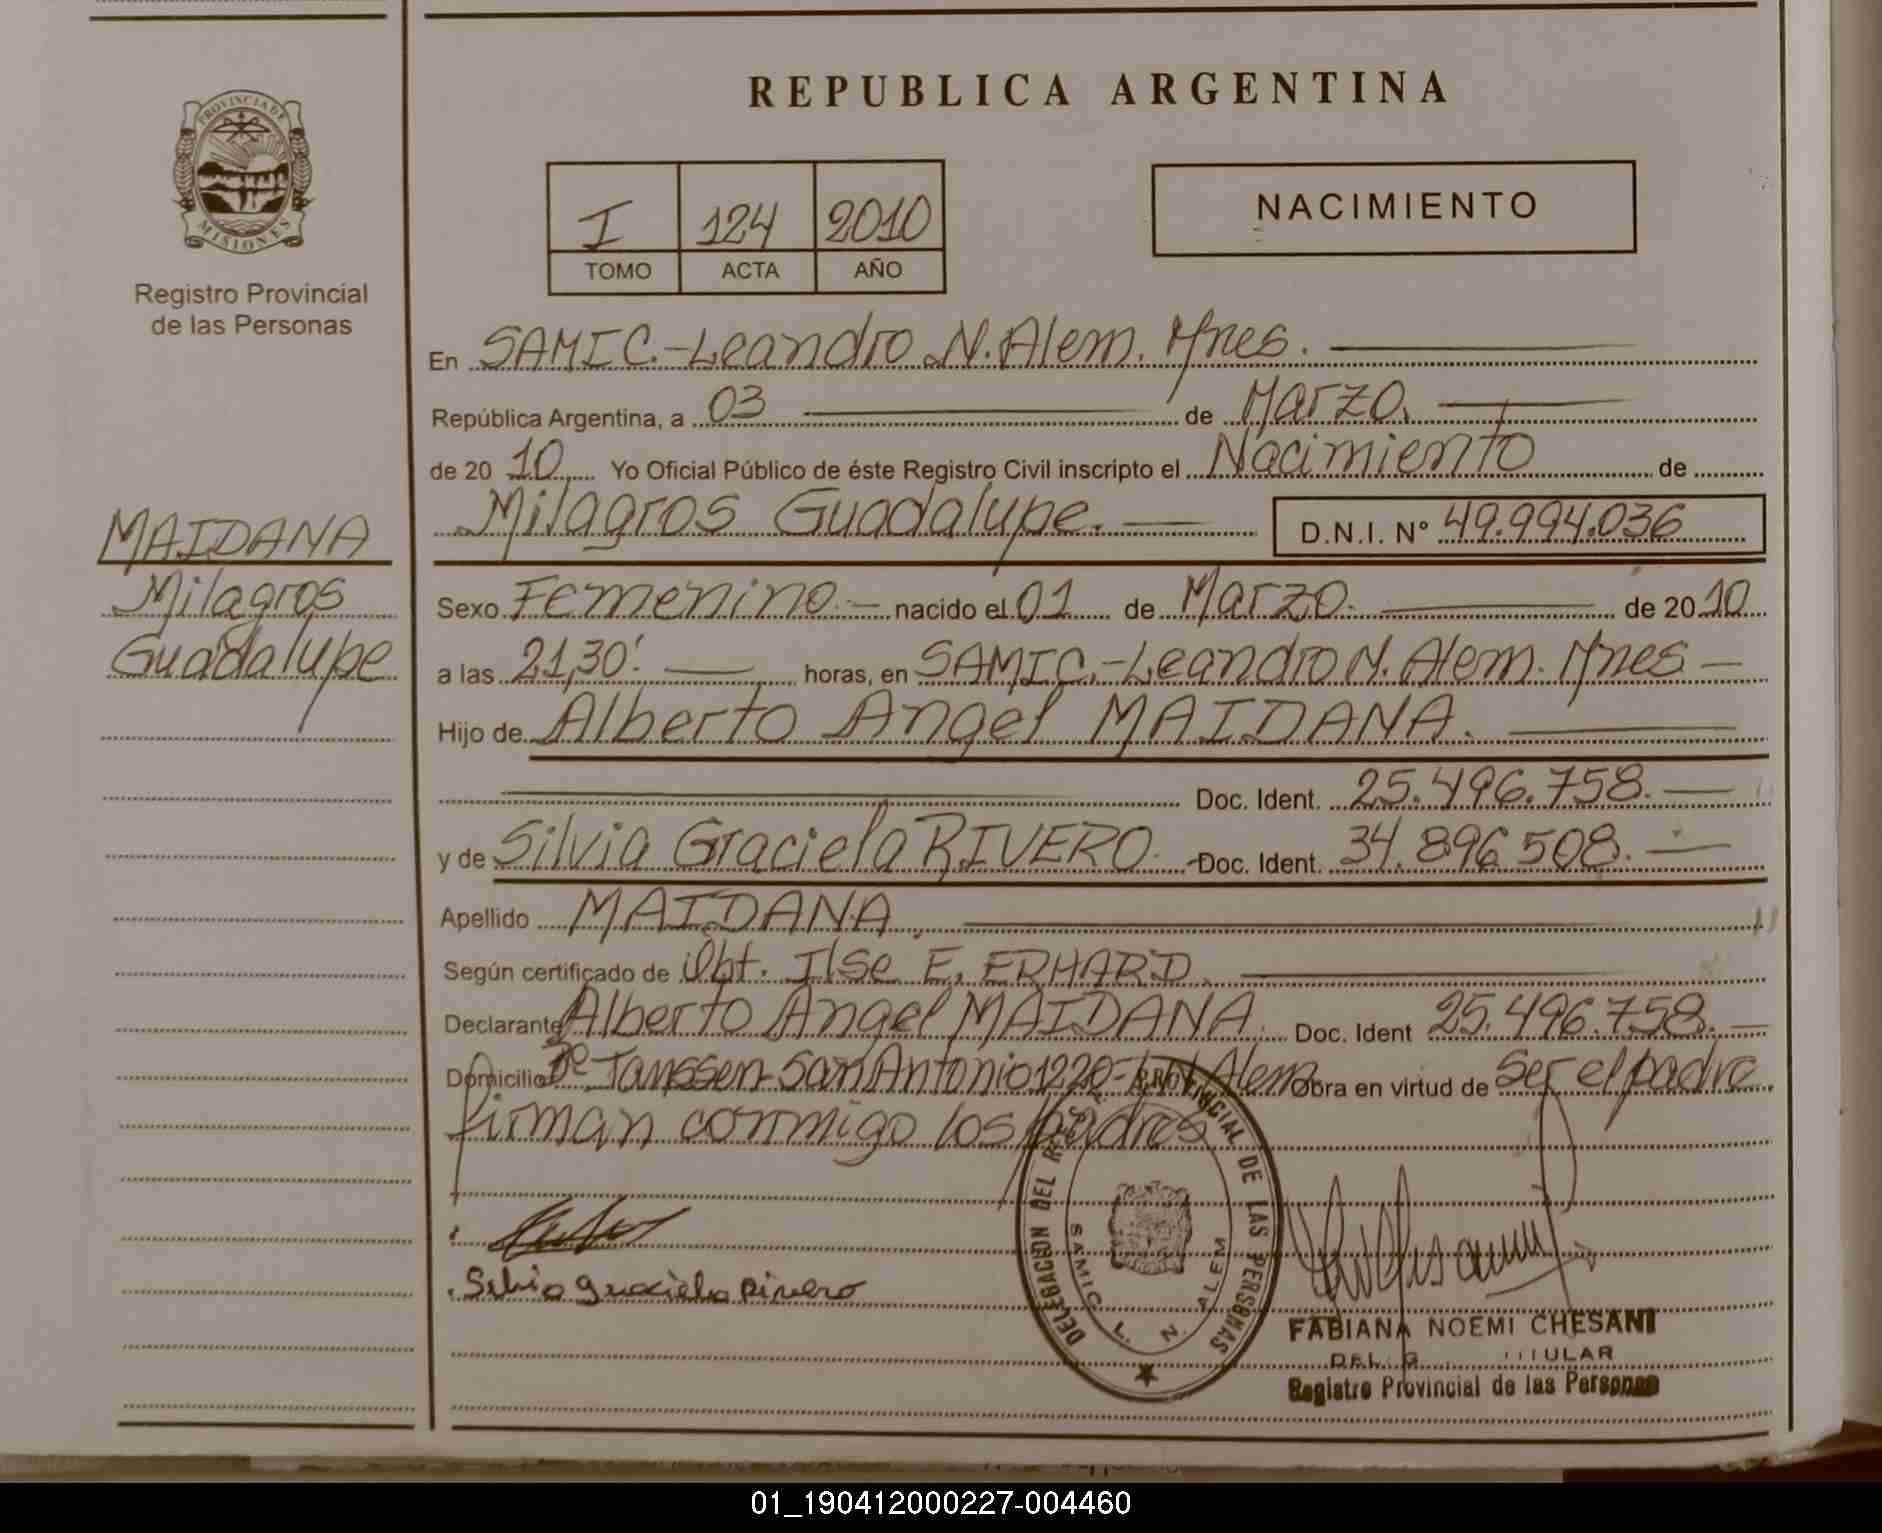 REPUBLICA ARGENTINA
PROVINCIA DE
MISIONES
Registro Provincial
de las Personas
I 124 2010
TOMO ACTA AÑO
NACIMIENTO
En SAMIC.-Leandro N. Alem. Mnes.
República Argentina, a 03 de Marzo.
de 20 10 Yo Oficial Público de éste Registro Civil inscripto el Nacimiento de
Milagros Guadalupe. D.N.I. N° 49.994.036
MAIDANA
Milagros
Guadalupe
Sexo Femenino.- nacido el 01 de Marzo. de 20 10
a las 21,30'. horas, en SAMIC.-Leandro N. Alem. Mnes
Hijo de Alberto Angel MAIDANA.
Doc. Ident. 25.496.758.
y de Silvia Graciela RIVERO. Doc. Ident. 34.896.508.
Apellido MAIDANA.
Según certificado de Obt. Ilse E. ERHARD
Declarante Alberto Angel MAIDANA. Doc. Ident 25.496.758.
Domicilio Bº Janssen-San Antonio 1220- Alem Obra en virtud de ser el padre
firman conmigo los padres
Silvia Graciela Rivero
DELEGACION DEL PROVINCIAL DE LAS PERSONAS
SAMIC L. N. ALEM
FABIANA NOEMI CHESANI
Registro Provincial de las Personas
01_190412000227-004460